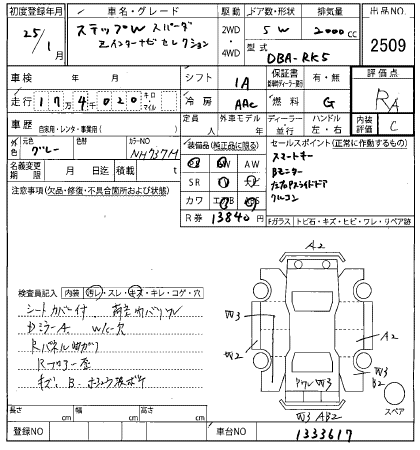 初度登録年月 車名・グレード 駆動 ドア数・形状 排気量 出品NO
25/1月 ステップW スパーダ 2WD 5 W 2000cc 2509
Z インターナビ セレクション 4WD 型式 DBA-RK5
車検 年 月 シフト IA 保証書 有・無 評価点
走行 17万4千020 キロ・マイル 冷房 AAC 燃料 G RA
車歴 自家用・レンタ・事業用( ) 定員 人 外車モデル 年 ディーラー 並行 ハンドル 左・右 内装評価 C
外色 元色 グレー 色替 カラーNO NH737M
装備品(純正品に限る) セールスポイント(正常に作動するもの)
名義変更期限 月 日迄 積載 t
SR ナビ
カワ エアB
スマートキー
Bモニター
クルコン
R券 13840円
注意事項(欠品・修復・不具合箇所および状態)
Fガラス トビ石・キズ・ヒビ・ワレ・リペア跡
A2
検査員記入 内装 汚レ・スレ・キズ・キレ・コゲ・穴
シートカバー付
DミラーA W/C欠
Rパネル曲がり
Rフロアー歪
W3
W2
A2
W3
B2
W3
W3 AB2
スペア
長さ cm 幅 cm 高さ cm
登録NO 車台NO 1333617